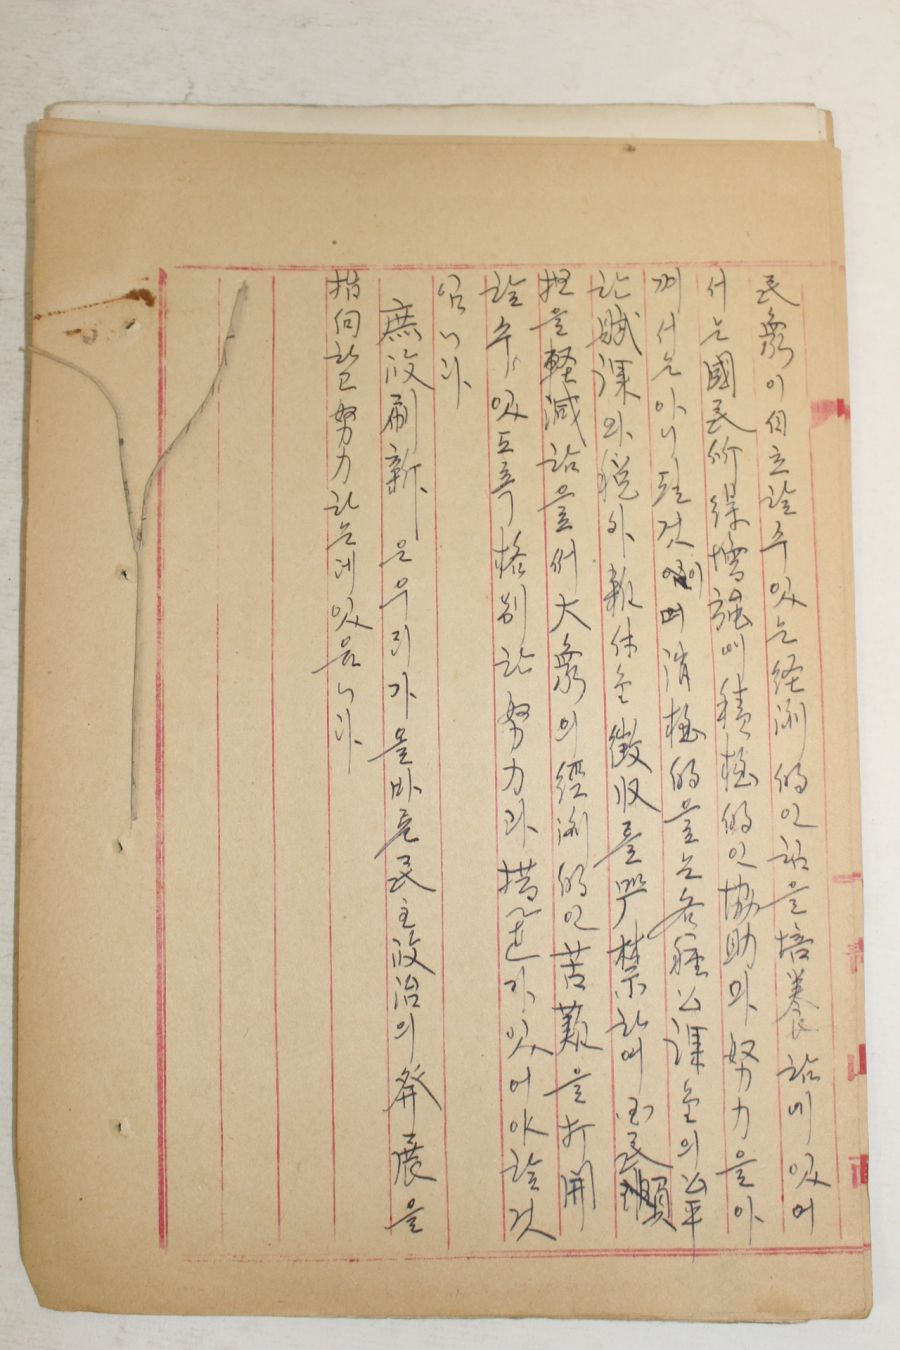 民衆이自立할수있는経済的인힘을培養함에있어
서는國民所得增强에積極的인協助와努力을아
끼서는아니될것이며消極的으로는各種公課金의公平
한賦課와稅外雜付金徵收를嚴禁하며国民負
担을軽減함으로서大衆의經済的인苦難을打開
할수가있도록格別한努力과措置가있어야할것
입니다
庶政刷新은우리가올바른民主政治의發展을
指向하고努力하는데있읍니다
山